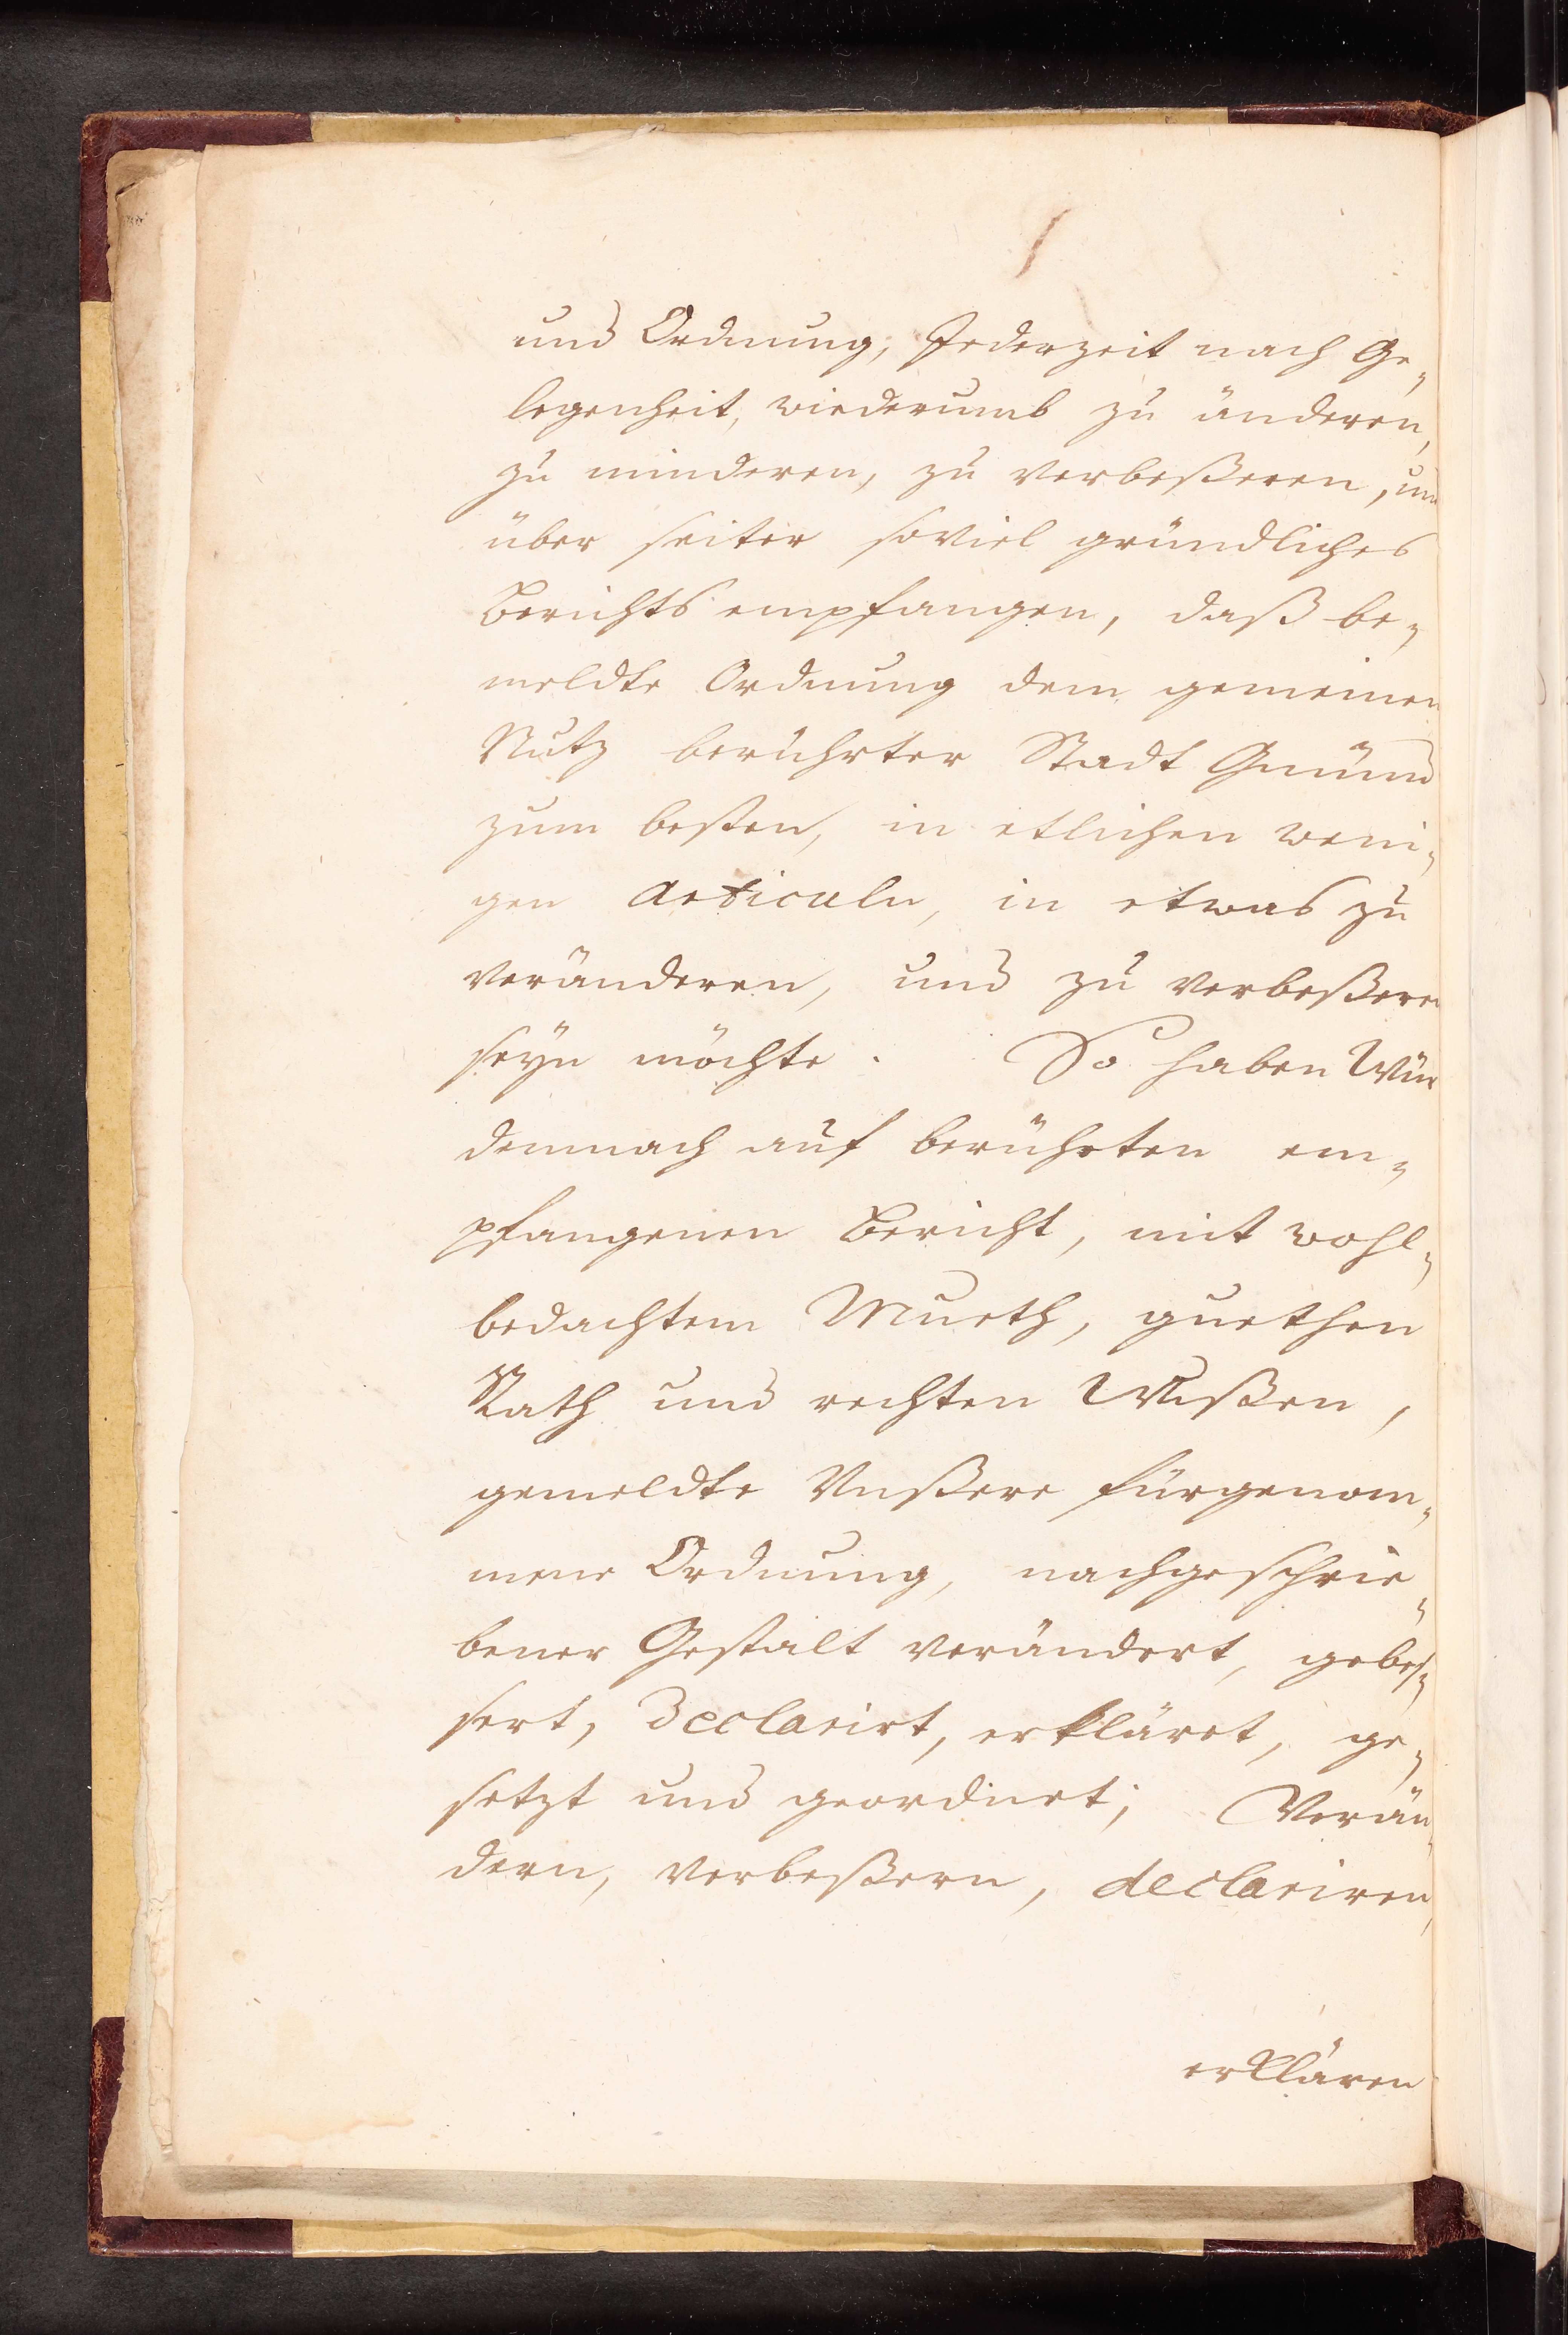 und Ordnung, Jederzeit nach Ge„
legenheit, wiederumb zu änderen,
zu minderen, zu verbeßeren, und
über seiter soviel gründliches
Berichts empfangen, daß be„
meldte Ordnung dem gemeinen
Nutz berührter Stadt Gmünd
zum besten, in etlichen weni„
gen Articuln, in etwas zu
veränderen, und zu verbeßeren
seÿn möchte. So haben Wür
demnach auf berührten em„
pfangenen Bericht, mit wohl„
bedachtem Mueth, guethen
Rath und rechten Wißen,
gemeldte Vnßere fürgenom„
mene Ordnung, nachgeschrie„
bener Gestalt verändert, gebes„
sert, Declarirt, erkläret, ge„
setzt und geordnet; Verän„
dern, verbeßern, declariren,
erklären